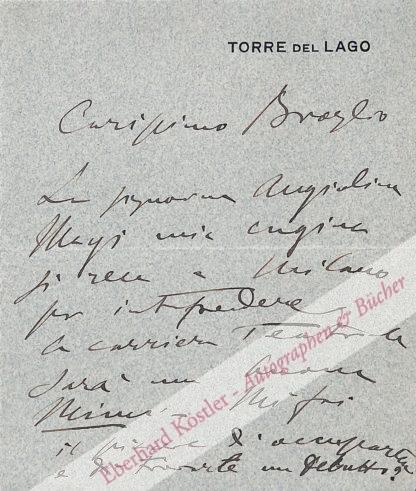 TORRE DEL LAGO
Carissimo Broglio
La signorina Angiolina
Magi mia cugina
si reca a Milano
per intraprendere
la carriera Teatrale
Sarà una buona
Mimi. Mi fai
il piacere d'occuparti
e di trovarle un debutto?
Eberhard Köstler - Autographen & Bücher